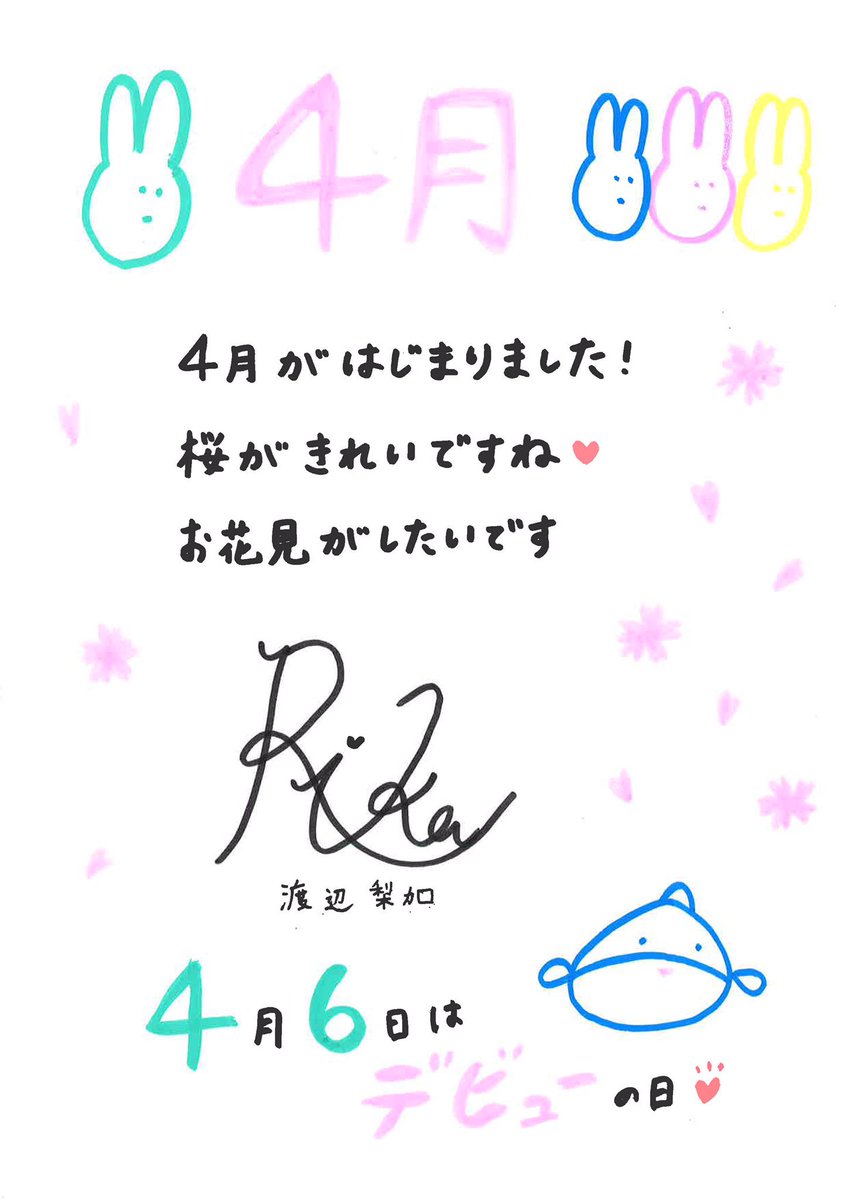 4月
4月がはじまりました!
桜がきれいですね♥
お花見がしたいです
Rika
渡辺梨加
4月6日は
デビューの日♥